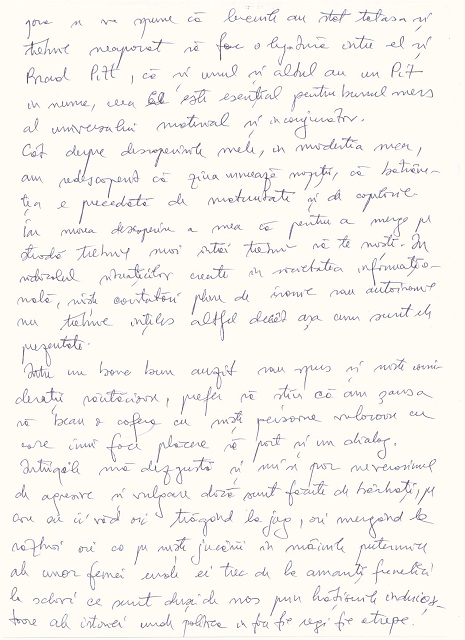 gora si va spune că lucrurile au stat totusi și
trebuie neapărat să fac o legătură între el și
Brad Pitt, că și unul și altul au un Pit
in nume, ceea ce este esențial pentru bunul mers
al universului material și inconjurător.
Cât despre descoperirile mele, in modestia mea,
am redescoperit că ziua urmează nopții, că bătrâne-
tea e precedată de maturitate și de copilărie.
În marea descoperire a mea că pentru a merge pe
stradă trebuie mai intâi trebuie să te naști. In
ridicolul situațiilor create in societatea informatio-
nală, niște cuvântări pline de ironie sau autoironie
nu trebuie înțeles altfel decât așa cum sunt ele
prezentate.
Intre un banc bun auzit sau spus și niște consi-
derații răutăcioase, prefer să știu că am șansa
să beau o cafea cu niște persoane valoroase cu
care imi face plăcere să port și un dialog.
Intrigile mă dezgustă și mi se par neverosimil
de agresive si vulgare dacă sunt făcute de bărbați, pe
care ori ii văd ori trăgând la jug, ori mergând la
război ori ca pe niște jucării in mâinile puternice
ale unor femei unde ei trec de la amanți frenetici
la sclavi ce sunt duși de nas prin hățișurile
ale istoriei unde politica in fru fie regi fie atrepe.